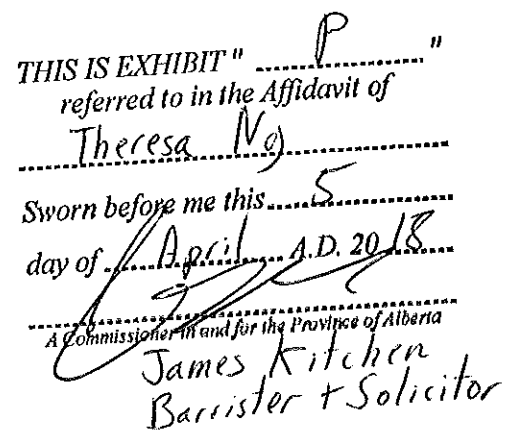 THIS IS EXHIBIT " P "
referred to in the Affidavit of
Theresa Ng
Sworn before me this 5
day of April A.D. 20 18
A Commissioner in and for the Province of Alberta
James Kitchen
Barrister + Solicitor